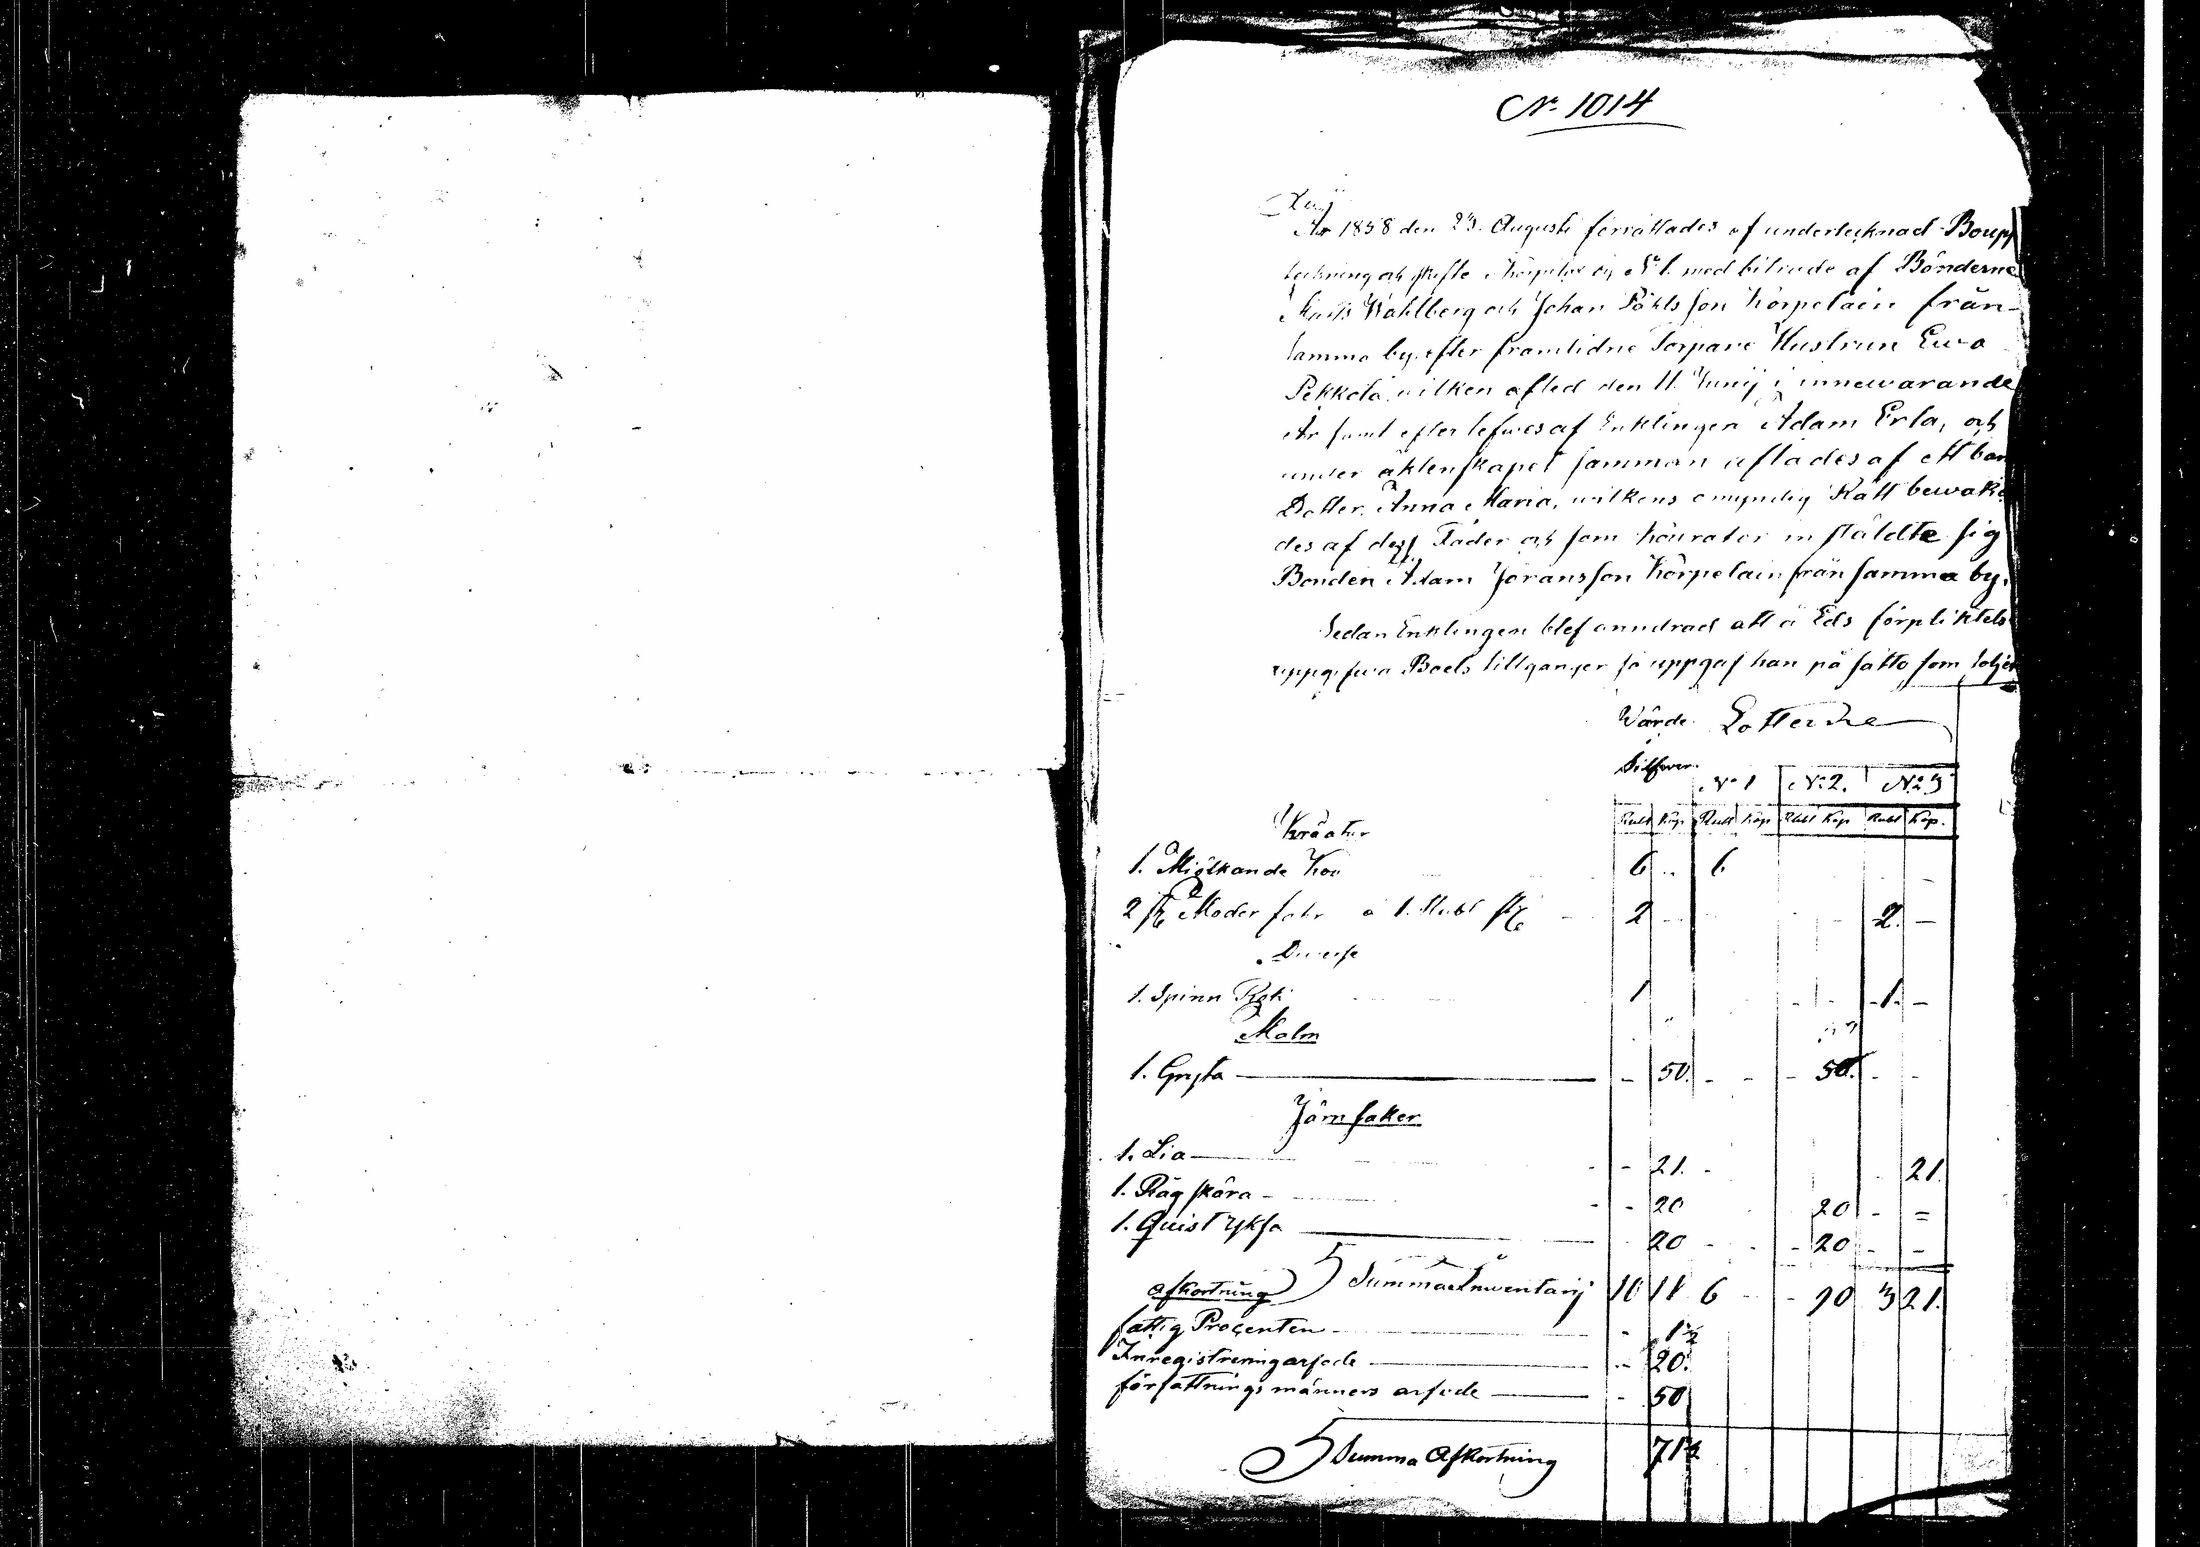 Nr 1014
År 1858 den 23. Augusti förrättades af undertecknad Boupp
teckning och skifte Nr 1. med biträde af Bönderne
Mats Wahlberg och Johan Påhlsson Körpelain från
samma by, efter framlidne Torpare Hustrun Ewa
Pekkola, wilken afled den 11. Junij i innewarande
År samt efter lefwes af Enklingen Adam Erla, och
under äktenskapet samman aflades af ett barn
Dotter, Anna Maria, wilkens omyndig Rätt bewaka
des af dess Fader och som Kourator instäldte sig
Bonden Adam Jöransson Körpelain från samma by.
Sedan Enklingen blef anmdrad att å Eds förpliktels
uppgifwa Boets tillgånger så uppgaf han på sätto som följer
Wärde Lotterne
Silfwer.
No 1 No 2. No 3
Kräatur Rubl Kop Rubl Kop Rubl Kop Rubl Kop.
1. Miölkande Ko 6 .. 6
2 st Moder fåhr a 1. Rubl st 2 - 2. -
Diverse
1. Spinn Råk 1 - 1. -
Malm
1. Gryta - 50. - - - 50. - -
Järn saker
1. Lia - 21. - 21.
1. Råg skära - - 20 20 - =
1. Quist yksa 20 - - - 20 - -
Summa Inwentarij 10 11 6 - - 90 3 21.
afkortning
fattig Procenten - 1½
Inregistreringarfode - 20.
författnings männers arfode - 50
Summa Afkortning 71½